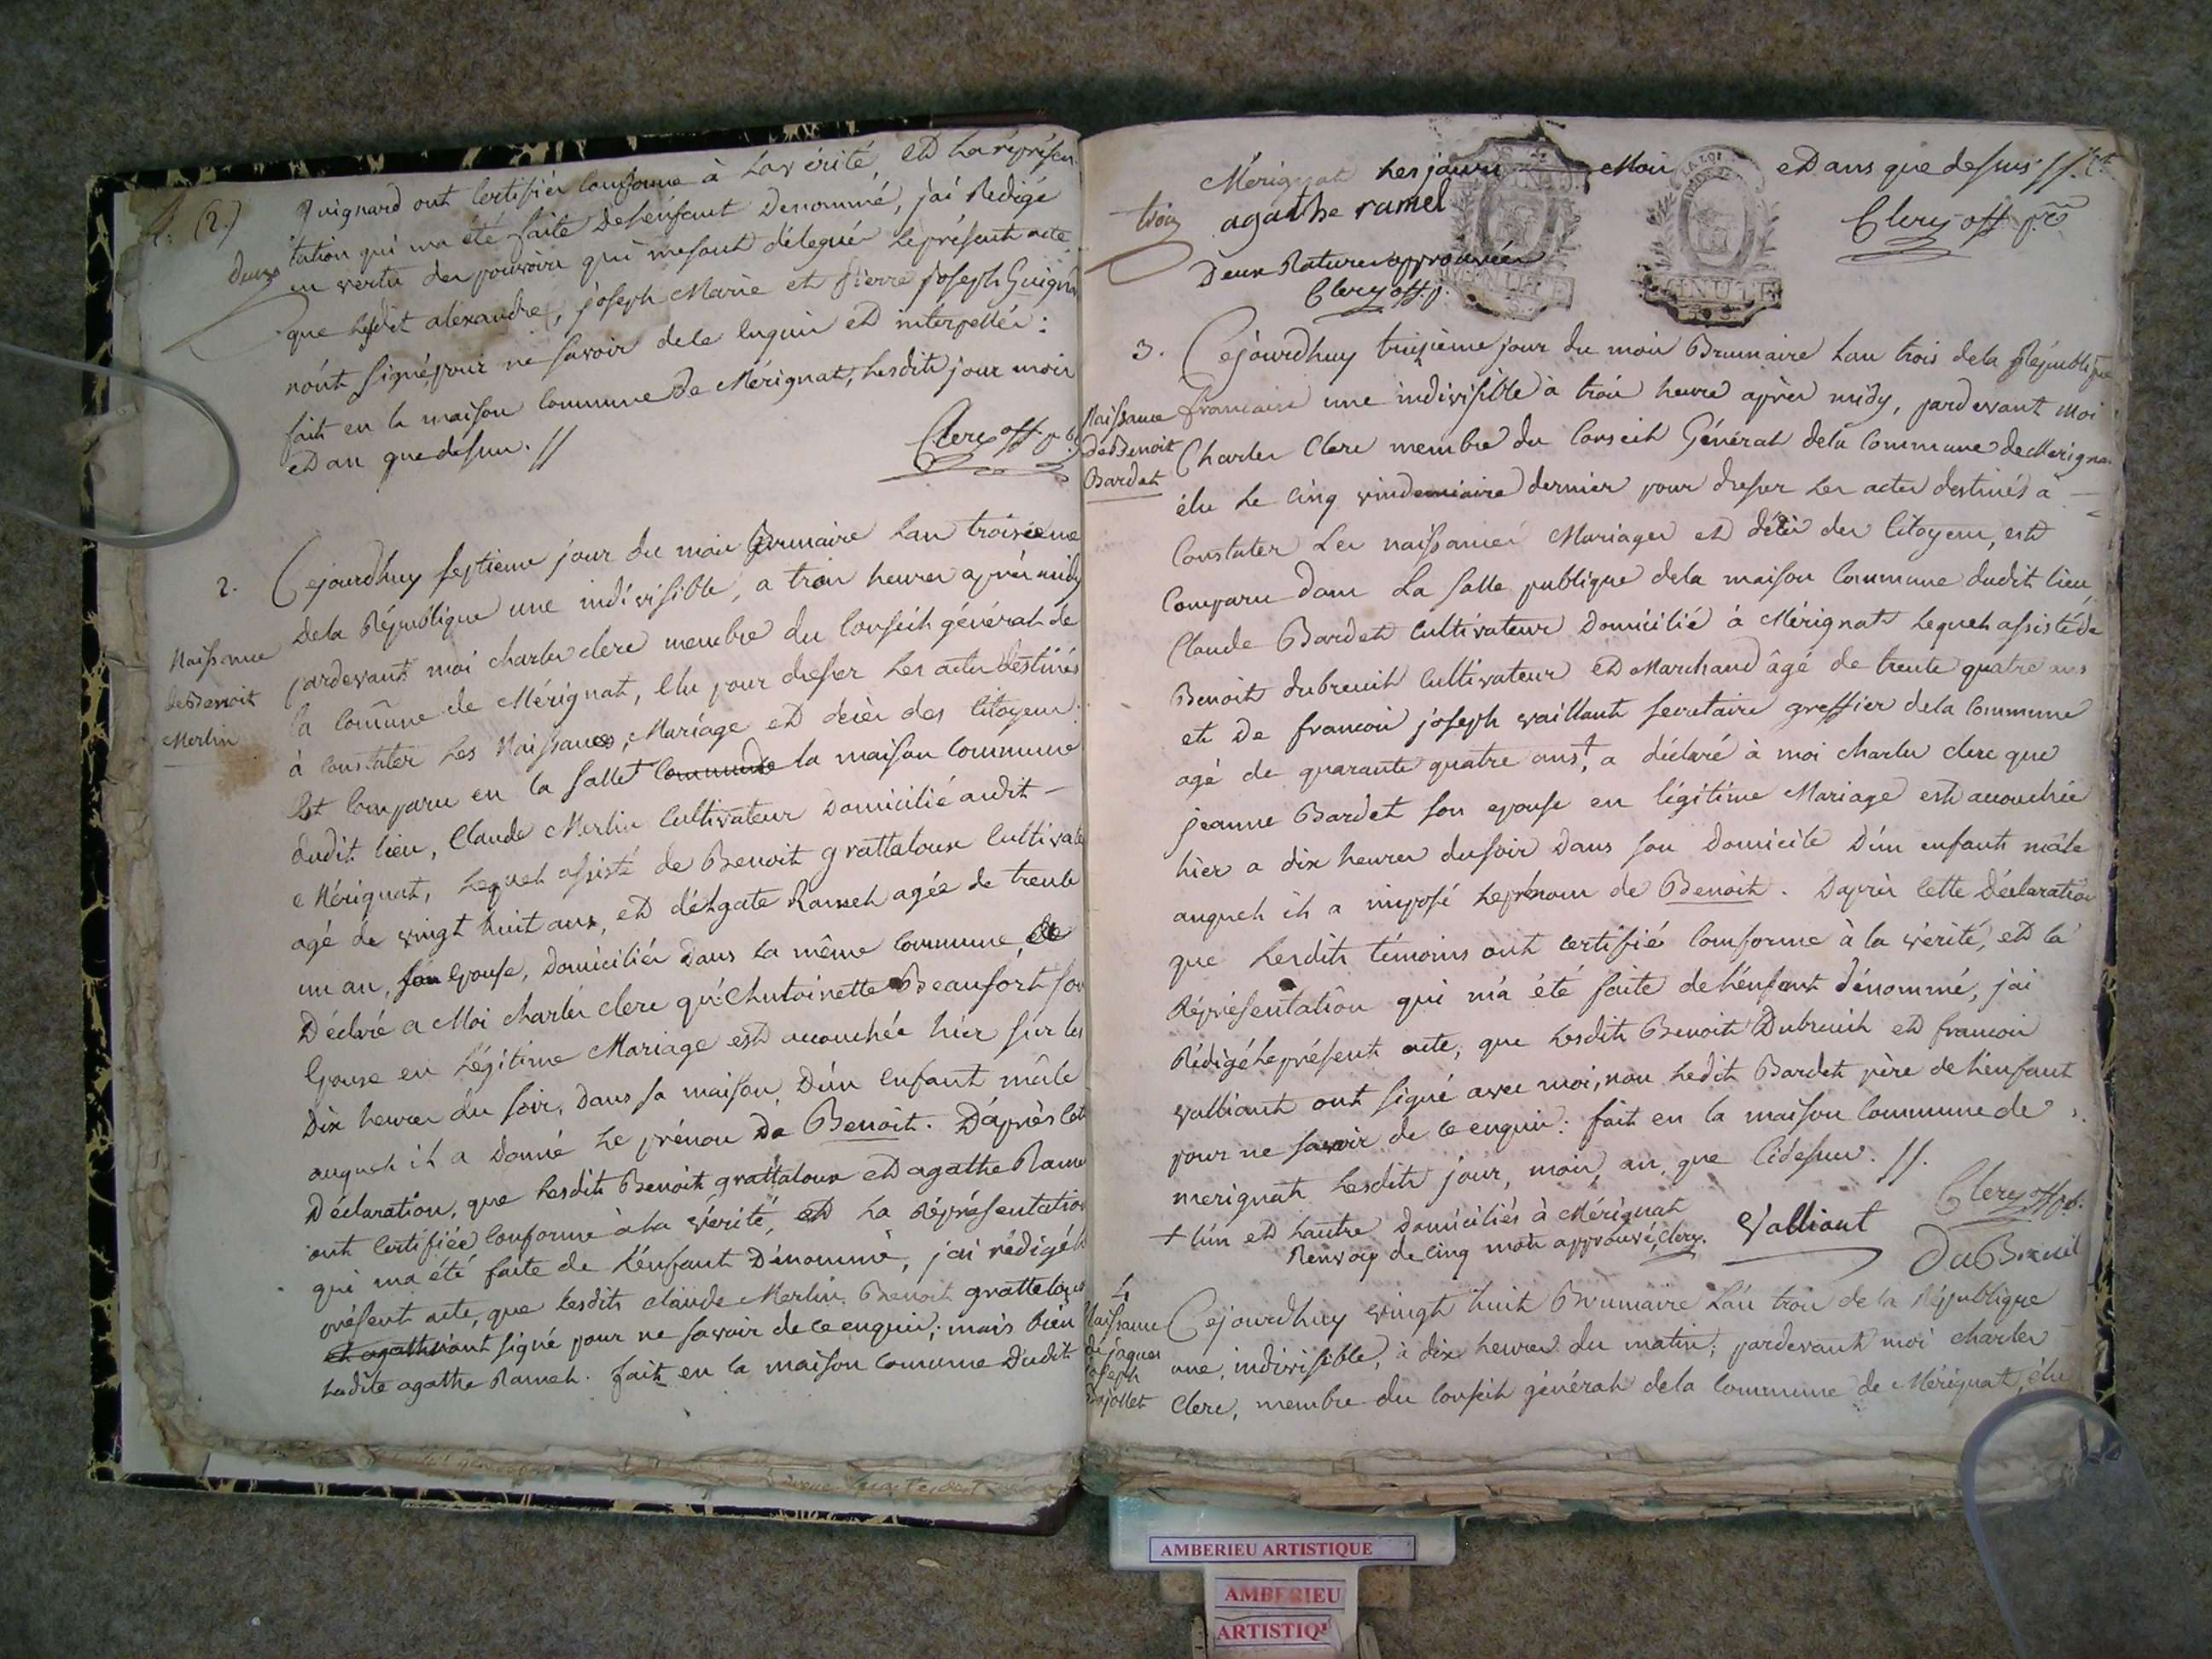 (2.)
Guignard ont Certifiér Conforme à La vérité, et La réprésen
deux
tation qui ma été faite de L'énfant Denommé, j'ai Redigé
en vertu des pouvoirs qui me sont déleguér Le présent acte
que Lesdit alexandre, joseph Marie et pierre joseph Guigna
n'ont signé pour ne savoir de ce enquis et interpellér:
fait en la maison Commune de Mérignat, Lesdits jour mois
et an que dessus. //
Clerc off. p.
2.
Naissance
de Benoit
Merlin
Cejourdhuy septieme jour du mois Brumaire Lan troisieme
de la République une indivisible, a trois heures après midy
pardevant moi charles clerc membre du Conseil général de
la Comune de Mérignat, Elu pour dresser Les actes destinés
à Constater Les Naissances, Mariage et decès des Citoyens.
Est Comparu en la Salle Commune de la maison Commune
dudit lieu, Claude Merlin Cultivateur Domicilié audit –
Mérignat, Lequel assisté de Benoit grattaloux Cultivate
agé de vingt huit ans, et d'Agate Ramel agée de trente
un an, son Epouse, domiciliés dans La même Commune, a
Déclaré a Moi charles clerc qu'Anthoinette Beaufort son
Epouse en Légitime Mariage est accouchée hier sur les
Dix heures du soir, dans sa maison D'un Enfant mâle
auquel il a Donné Le prénom de Benoit. D'après Cet
Déclaration, que Lesdits Benoit grattaloux et agathe Rame
ont Certifiée Conforme à La vérité, et La Réprésentation
qui ma été faite de L'énfant Dénommé, j'ai rédigé L
présent acte, que Lesdits claude Merlin Benoit grattaloux
et agathe n'ont signé pour ne savoir de ce enquis; mais bien
Ladite agathe Ramel. fait en la maison Comune Dudit
Mérignat Les jours Mois et Dans que dessus //.
trois
agathe ramel
Clerc off. p.
Deux Ratures approuvées
Clerc off. p.
3.
Naissance
de Benoit
Bardet
Cejourdhuy treizieme jour du mois Brumaire Lan trois de la République
francaise une indivisible à trois heure après midy, pardevant moi
Charles Clerc membre du Conseil Général de la Commune de Mérigna
élu Le Cinq vindemiaire dernier pour dresser Les actes destinés à –
Constater Les naissances Mariages et décès des Citoyens, est
Comparu dans La Salle publique de la maison Commune dudit lieu,
Claude Bardet Cultivateur Domicilié à Mérignat Lequel assisté de
Benoit dubreuil Cultivateur et Marchand âgé de trente quatre ans
et de francois joseph vaillant secretaire greffier de la Commune
agé de quarante quatre ans,+ a déclaré à moi charles clerc que
jeanne Bardet son epouse en légitime Mariage est accouchée
hier a dix heures du soir Dans son Domicile D'un enfant mâle
auquel il a imposé Le prénom de Benoit. Daprès Cette Déclaration
que Lesdits témoins ont certifié Comforme à la vérité, et la
Réprésentation qui m'a été faite de L'énfant dénommé, j'ai
Rédigé Le présent acte, que Lesdits Benoit Dubreuil et francois
valliant ont signé avec moi, non Ledit Bardet père de L'énfant
pour ne savoir de ce enquis: fait en la maison Commune de
merignat Lesdits jour, mois, an, que Cidessus. //.
+ L'un et Lautre domiciliés à Mérignat
Renvoy de Cinq mots approuvé, Clerc.
Valliant
Clerc off. p.
DuBreuil
4
Naissance
de jaques
joseph
Cejourdhuy vingt huit Brumaire L'an trois de la République
une, indivisible, à dix heures du matin; pardevant moi charles
Clerc, membre du Conseil général de la Commune de Mérignat, élu
AMBERIEU ARTISTIQUE
AMBERIEU
ARTISTIQU